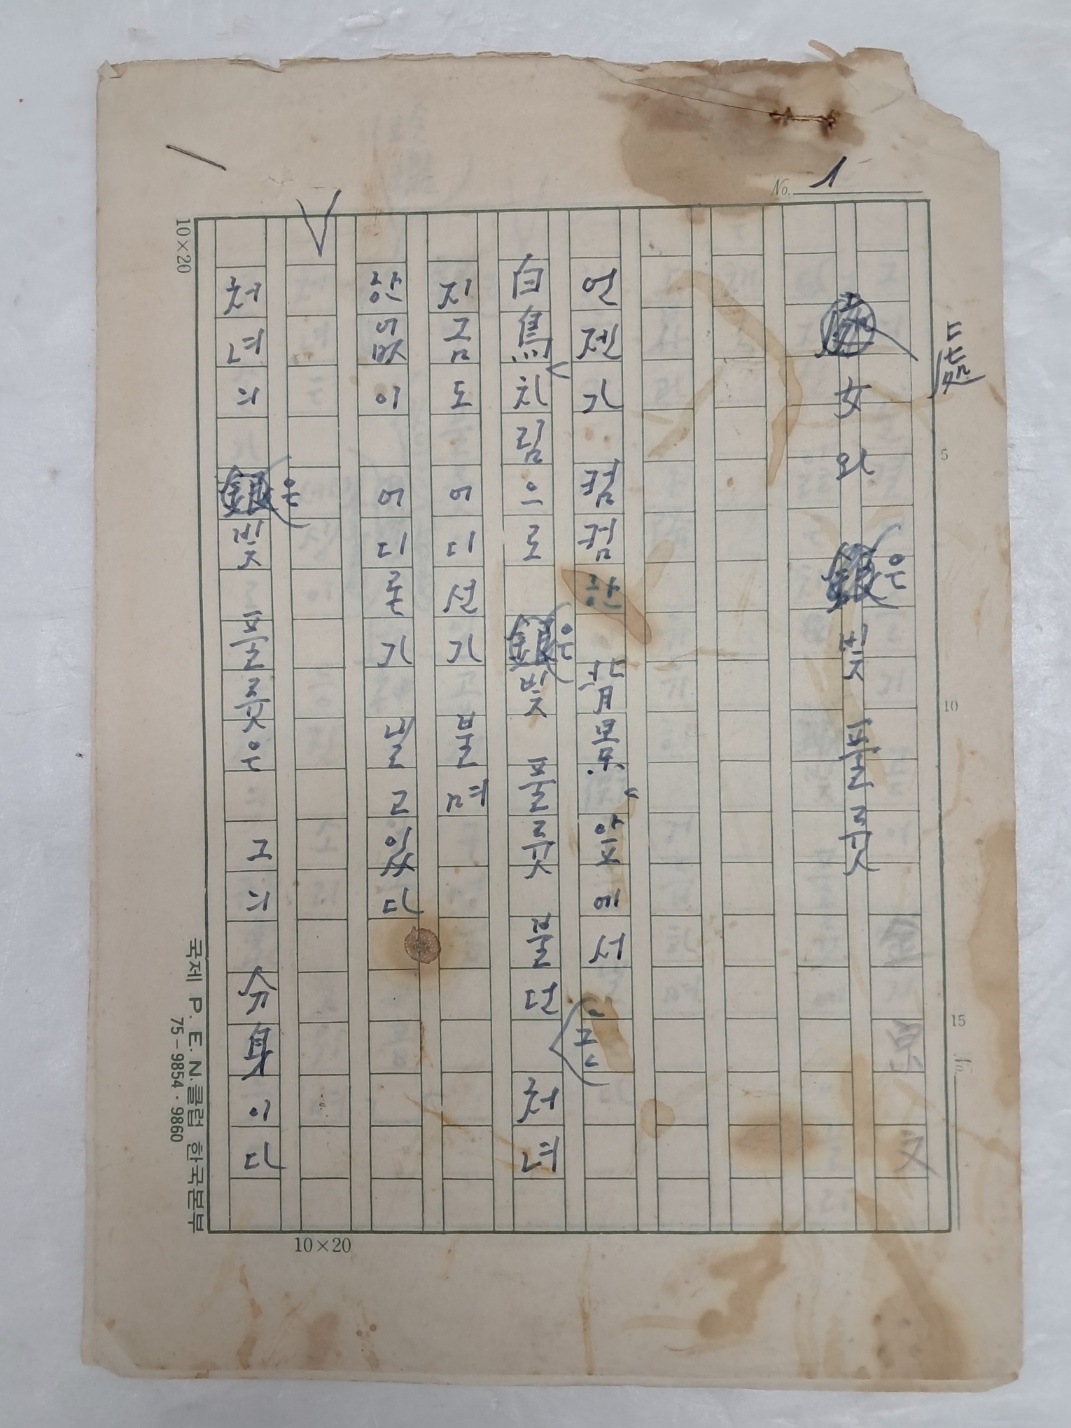 No. 1
處
女와 銀은빛 플롯
金京文
언젠가 컴컴한 앞에서
白鳥차림으로 銀은빛 플롯 불던 그 처녀
지금도 어디선가 불며
한없이 어디론가 날고 있다
처녀의 銀은빛 플롯은 그의 分身이다
5
10
15
10×20
10×20
국제 P.E.N.클럽 한국본부
75-9854·9860